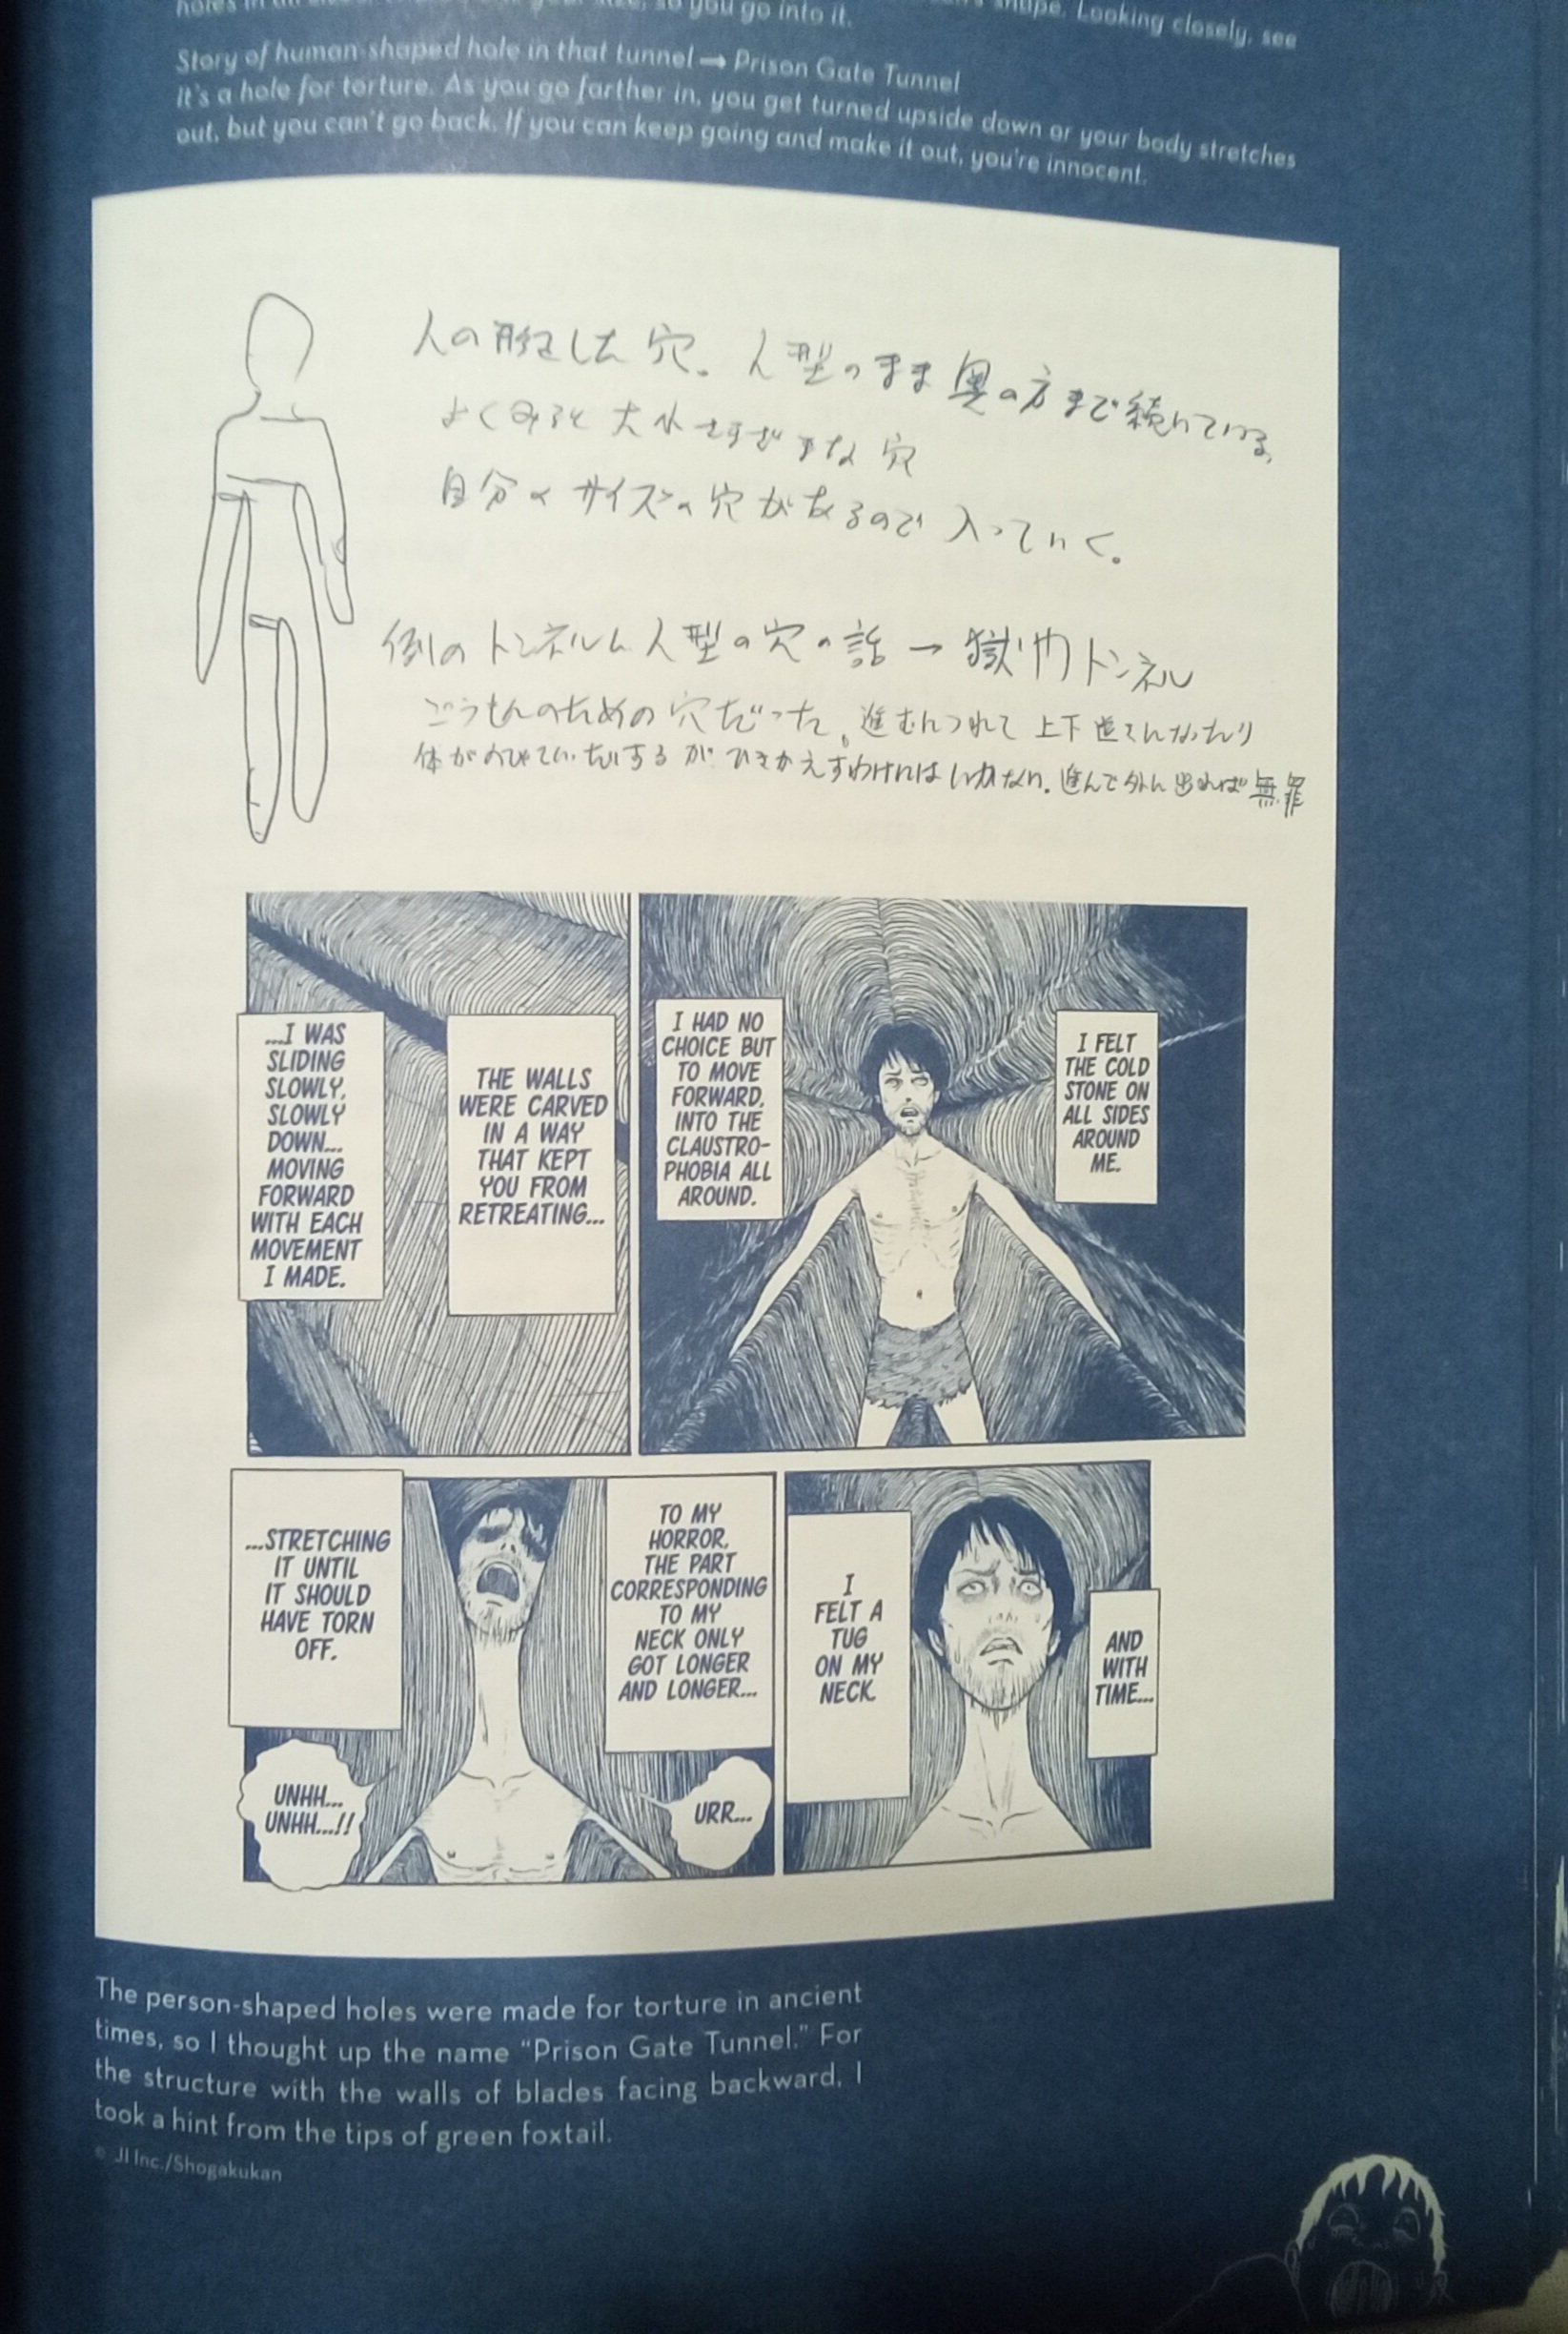 so you go into it.
shape. Looking closely, see
Story of human-shaped hole in that tunnel → Prison Gate Tunnel
It's a hole for torture. As you go farther in, you get turned upside down or your body stretches
out, but you can't go back. If you can keep going and make it out, you're innocent.
人の形をした穴。人型のまま奥の方まで続いている。
よくみると大小さまざまな穴
自分のサイズの穴があるので入っていく。
例のトンネルに人型の穴の話→獄門トンネル
ごうもんのための穴だった。進むにつれて上下逆さになったり
体がのびていったりするがひきかえすわけにはいかない。進んで外に出れば無罪
I FELT
THE COLD
STONE ON
ALL SIDES
AROUND
ME.
I HAD NO
CHOICE BUT
TO MOVE
FORWARD,
INTO THE
CLAUSTRO-
PHOBIA ALL
AROUND.
THE WALLS
WERE CARVED
IN A WAY
THAT KEPT
YOU FROM
RETREATING...
...I WAS
SLIDING
SLOWLY,
SLOWLY
DOWN...
MOVING
FORWARD
WITH EACH
MOVEMENT
I MADE.
AND
WITH
TIME...
I
FELT A
TUG
ON MY
NECK.
TO MY
HORROR,
THE PART
CORRESPONDING
TO MY
NECK ONLY
GOT LONGER
AND LONGER...
...STRETCHING
IT UNTIL
IT SHOULD
HAVE TORN
OFF.
URR...
UNHH...
UNHH...!!
The person-shaped holes were made for torture in ancient
times, so I thought up the name “Prison Gate Tunnel.” For
the structure with the walls of blades facing backward, I
took a hint from the tips of green foxtail.
© JI Inc./Shogakukan